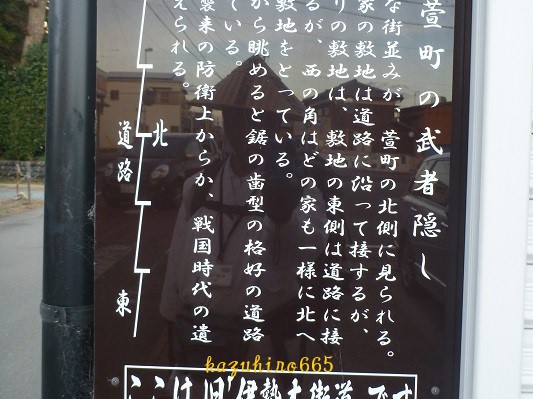 萱町の武者隠し
な街並みが、萱町の北側に見られる。
家の敷地は道路に沿って接するが、
りの敷地は、敷地の東側は道路に接
るが、西の角はどの家も一様に北へ
敷地をとっている。
から眺めると鋸の歯型の格好の道路
ている。
襲来の防衛上からか、戦国時代の遺
えられる。
北
道路
東
kazuhiro665
ここは旧伊勢本街道です